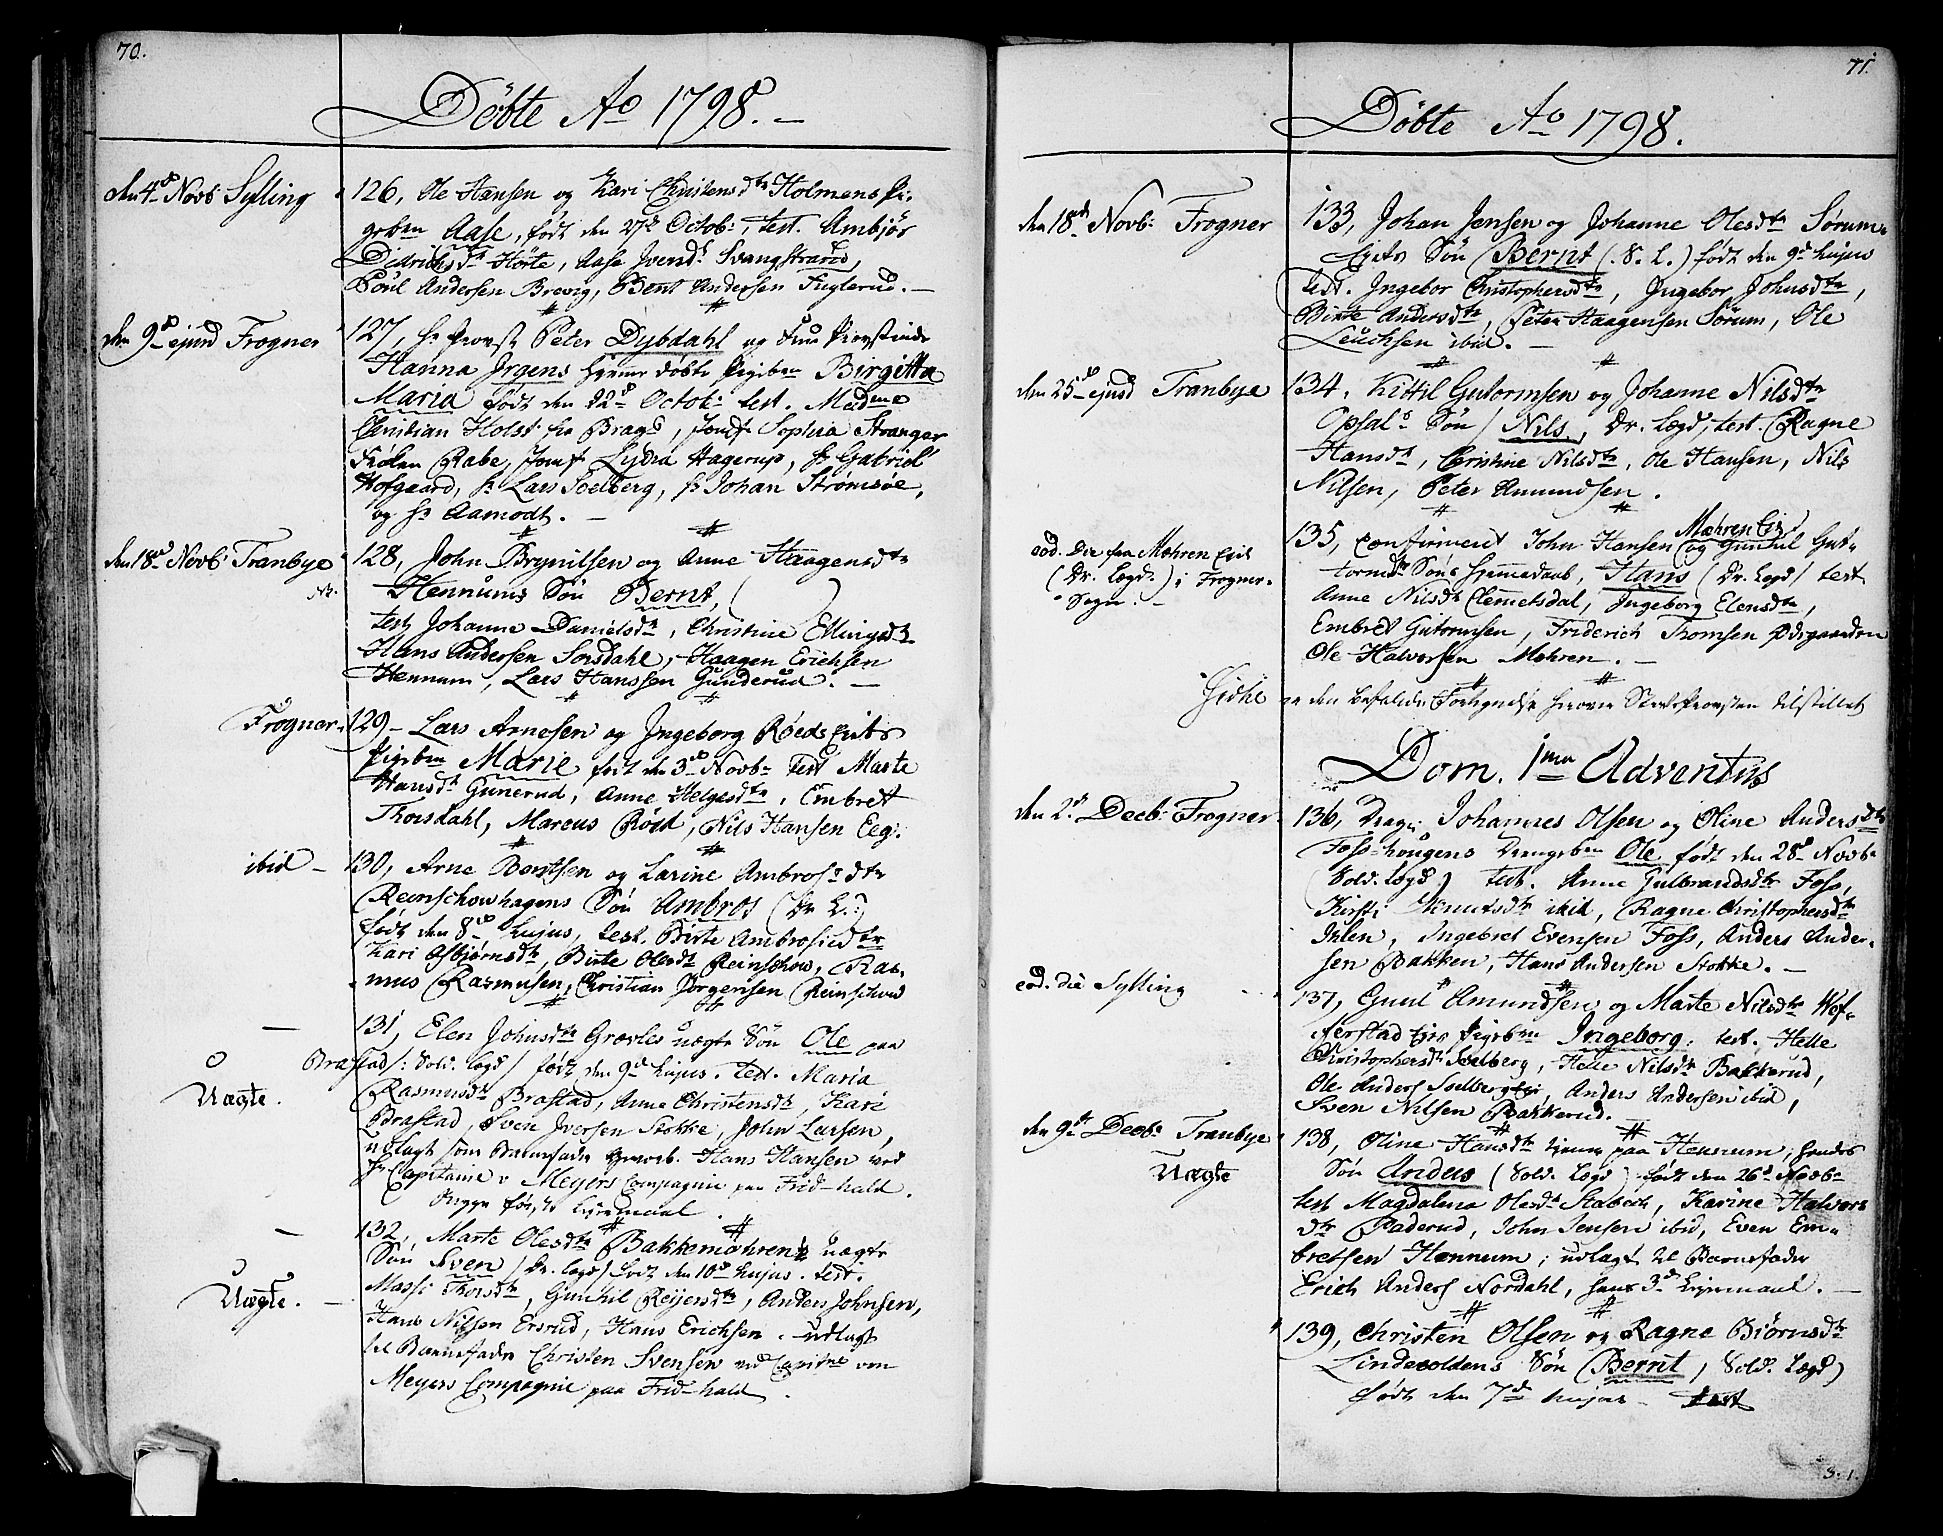 70.
Döbte Ao 1798. —
den 4de Novb: Sylling
126, Ole Hansen og Kari Christensdtr Holmens Pi-
gebm Aase, født den 27de Octob:, test. Ambjör
Didrichsdtr Hörte, Aase Jvensdr Svangstrand,
Poul Andersen Brevig, Bent Andersen Fuglerud. —
den 9de ejusd Frogner
127, Hr Provst Peter Dybdahl og Frue Provstinde
Hanna Jrgens hjemme döbte Pigebm Birgitta
Maria født den 22de Octob: test. Madme
Christian Holst fra Bragd, Jomf Sophia Stranger
Frölen Rabe, Jomf Lydia Hagerup, Hr Gabriel
Hofgaard, Hr Lars Soelberg, Hr Johan Strømsöe,
og Hr Aamodt. —
den 18de Novb: Tranbye
NB.
128, John Brynilsen og Anne Haagensdtr
Hennums Sön Bernt, ( )
test Johanne Danielsdtr, Christine Ellingsdtr
Hans Andersen Sorsdahl, Haagen Erichsen
Hennum, Lars Hanssen Gunderud. —
Frogner
129 — Lars Arnesen og Jngeborg Röeds Eiets
Pigebm Marie født den 3de Novb: test Marte
Hansdtr Gunerud, Anne Helgesdtr, Embret
Thorsdahl, Marcus Röed, Nils Hansen Eeg.
ibid —
130, Arne Berntsen og Karine Ambrosdtr
Reinschowhagens Sön Ambros (Dr L:)
født den 8de hujus, test. Birte Ambrosiedtr
Kari Asbjørnsdtr, Birte Olesdtr Reinschow, Ras-
mus Rasmusen, Christian Jörgensen Reinschow
131, Elen Johnsdtr Grevles uægte Sön Ole paa
Brastad /: Sold. Legd / født den 9de hujus. test. Maria
Uægte.
Rasmusdtr Brastad, Anne Christensdtr, Kari
Brastad, Sven Jversen Stokke, John Larsen,
udlagt som Barnefader Hans Hansen ved
Hr Capitaine v Meyers Compagnie paa Frid-hald.
Begge første Leiermaal.
132, Marte Olesdtr Bakkemæhren uægte
Sön Sven / Dr. Legd / født den 10de hujus. test.
Uægte. —
Massi Thorsdtr, Gunhil Reijersdtr, Anders Johnsen,
Hans Nilsen Ersrud, Hans Erichsen. udlagt
til Barnefader Christen Svensen ved Capitne von
Meyers Compagnie paa Frid-hald.
71.
Döbte Ao 1798.
den 18de Novb: Frogner
133, Johan Jensen og Johanne Olesdtr Sørum-
Eiets Sön Bernt (S. L.) født den 9de hujus
test. Jngebor Christophersdtr, Jngebor Johnsdtr,
Birte Andersdtr, Peter Haagensen Sørum, Ole
ibid. —
den 25de ejusd Tranbye
134. Kittil Gutormsen og Johanne Nilsdtr
Opsals Sön / Nils, Dr. Legd, test. Ragne
Hansdtr, Christine Nilsdtr, Ole Hansen, Nils
Nilsen, Peter Amundsen.
eod. Die fra Mæhren Eiet
(Dr. Legd.) i Frogner
Sogn. —
135, confirmeret John Hansen Mæhren Eie og Gunhil Gut-
tormsdtr Söns hjemmedaab, Hans (Dr. Legd) test
Anne Nilsdtr Clemetsdal, Jngeborg Elensdtr,
Embret Gutormsen, Friderich Thomsen Ødegaarden
Ole Halvorsen Mæhren. —
er den befalede Fortegnelse herover Stiftsprovsten tilstillet
Dom. 1ma Adventus
den 2. Decb: Frogner
136, Johannes Olsen og Oline Andersdtr
Foss-hougens Drengebm Ole født den 28de Novb:
(Sold. Legd) test. Anne Gulbrandsdtr Foss,
Kirsti Knutsdtr ibid, Ragne Christophersdtr
Ihlen, Jngebret Evensen Foss, Anders Ander-
sen Bakken, Hans Andersen Stokke. —
eod. die Sylling
137, Gunil Amundsen og Marte Nilsdtr Hof-
ferstad Eies Pigebm Jngeborg. test. Helle
Christophersdtr Soelberg, Helle Nilsdtr Bakkerud,
Ole Anders Soelbergeie, Anders Andersen ibid,
Sven Nilsen Bakkerud.
den 9de Decb: Tranbye
Uægte
138, Oline Hansdtr tjener paa Hennum, hendes
Sön Anders (Sold. Legd) født den 26de Novb:
test Magdalena Olesdtr Stabech, Karine Halvors
dtr Baderud, John Jensen ibid, Even Em-
bretsen Hennum; udlagt til Barnefader
Erich Anders Nordahl, hans 3de Leiermaal. —
139, Christen Olsen og Ragne Biørnsdtr
Lindevoldens Sön Bernt, Sold. Legd)
født den 7de hujus — test